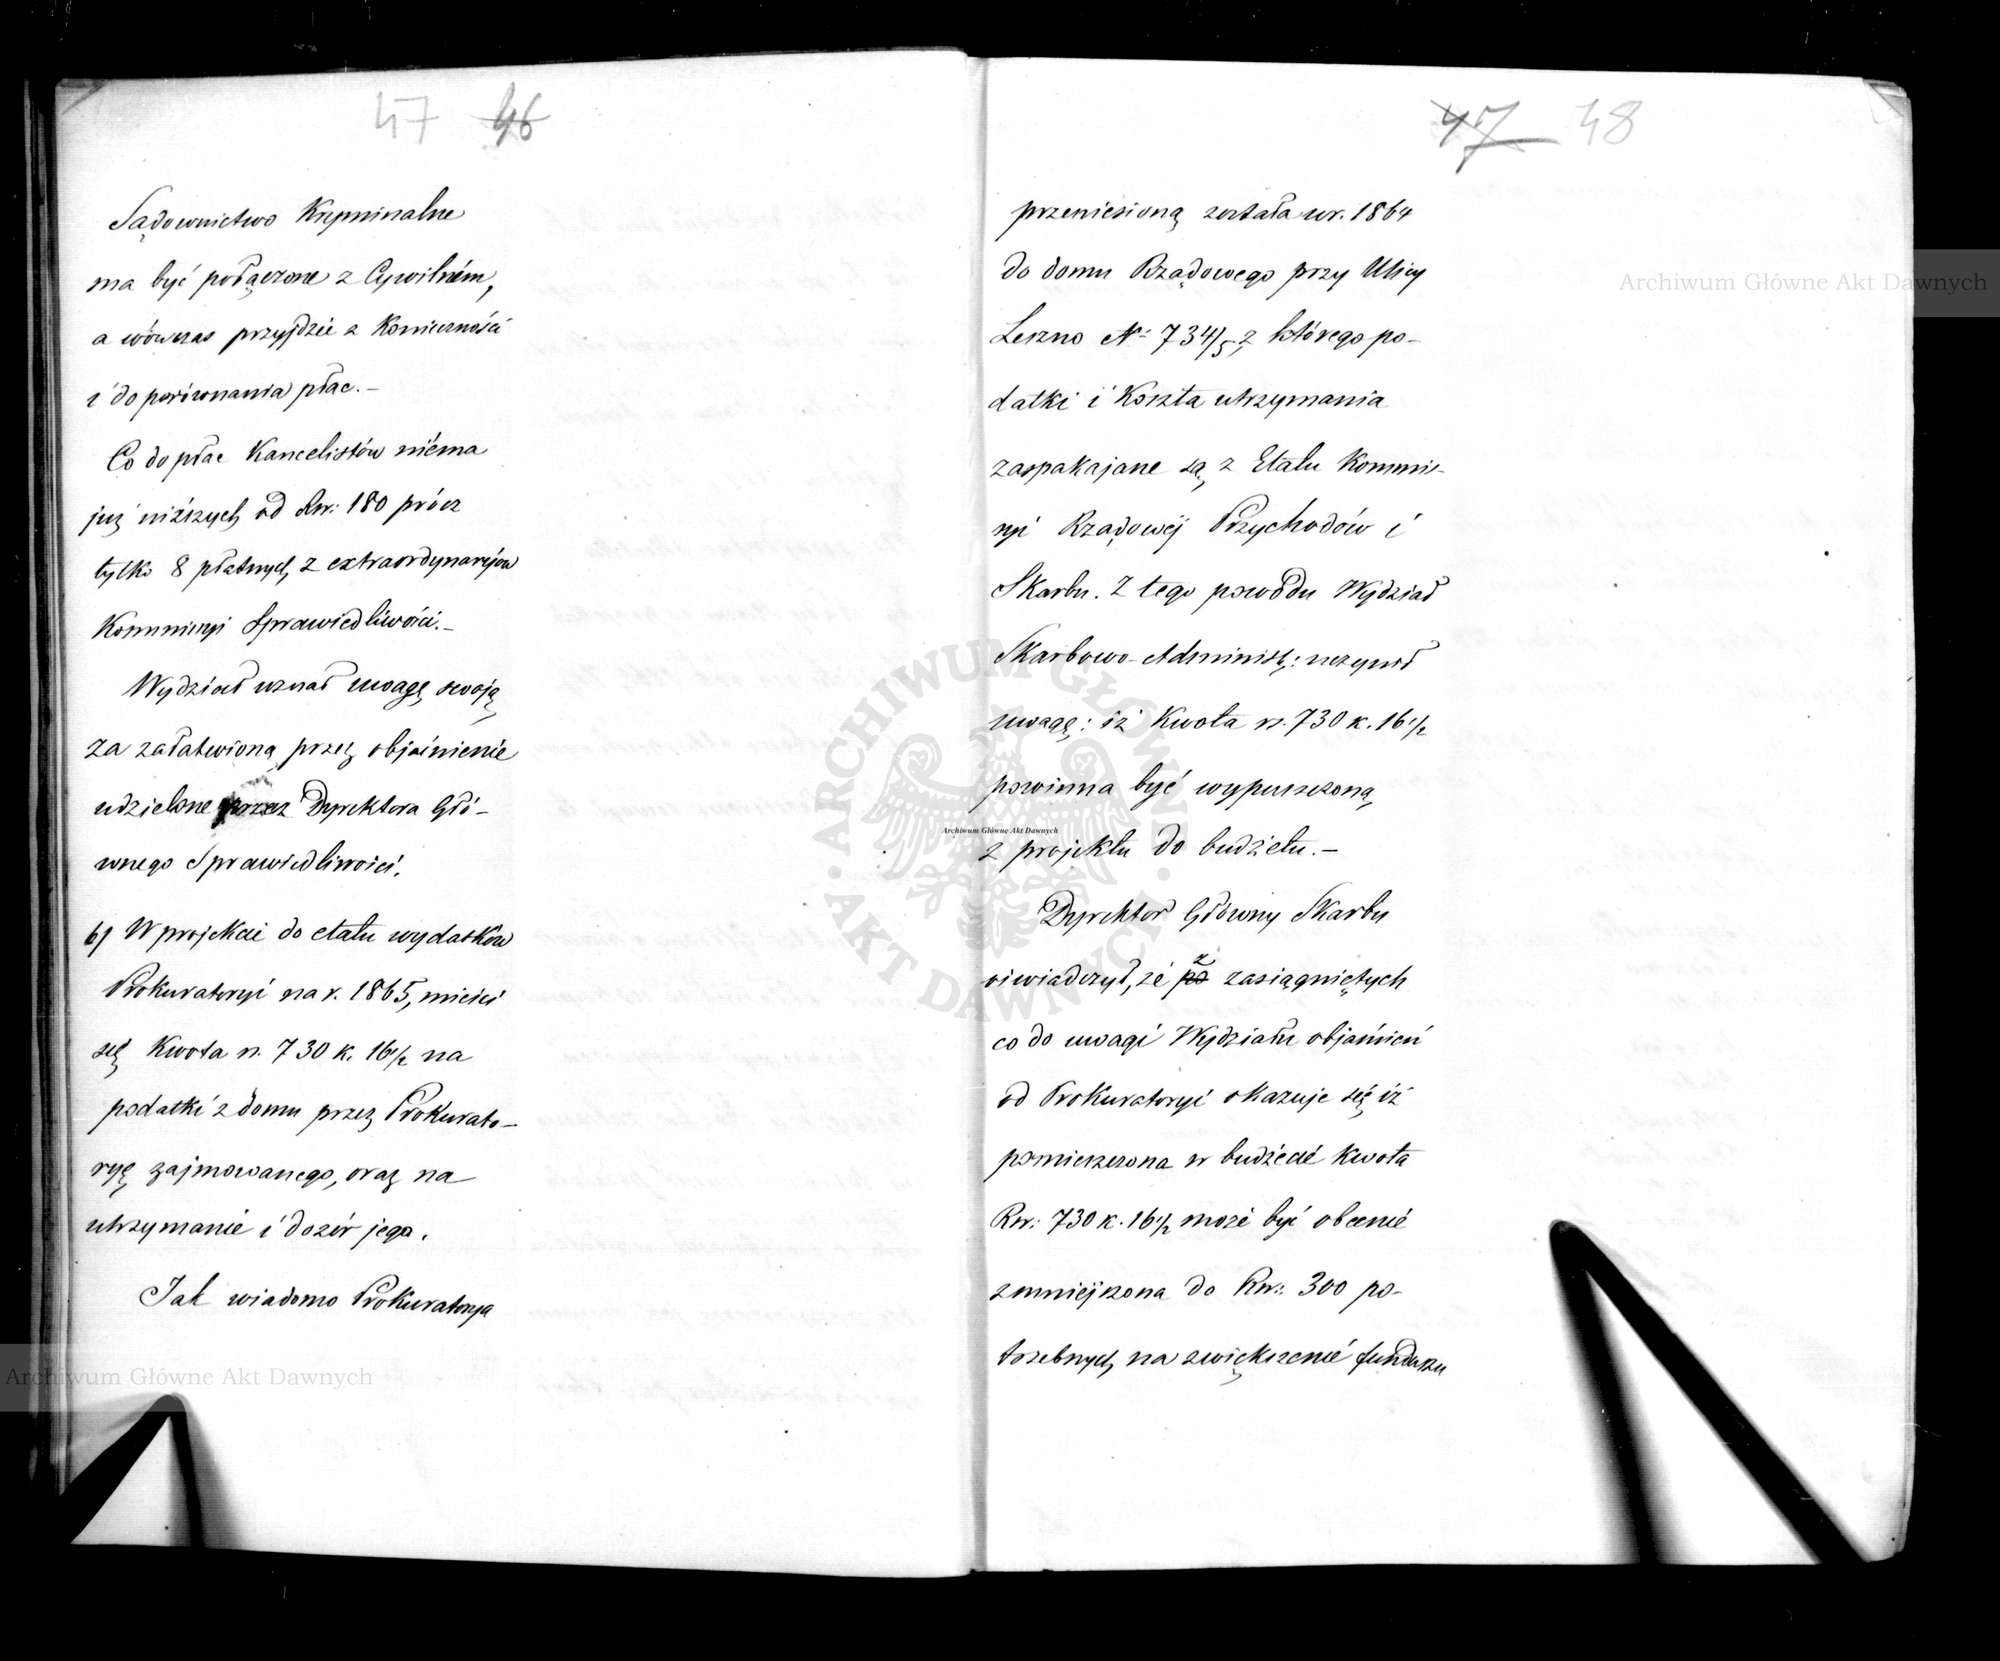 47 46
Sądownictwo Kryminalne
ma być połączone z Cywilném,
a wówczas przyjdzie z Konieczności
i do porównania płac.–
Co do płac Kancelistów niéma
już niższych od Rsr: 180 prócz
tylko 8 płatnych z extraordynaryjów
Kommissyi Sprawiedliwości.–
Wydział uznał uwagę swoją
za załatwioną przez objaśnienie
udzielone przez Dyrektora Głó-
wnego Sprawiedliwości.
6/ W projekcie do etatu wydatków
Prokuratoryi na r. 1865, mieści
się Kwota rs. 730 k. 16½ na
podatki z domu przez Prokurato-
ryę zajmowanego, oraz na
utrzymanie i dozór jego.
Jak wiadomo Prokuratorya
47 48
przeniesioną została w r. 1864
do domu Rządowego przy Ulicy
Leszno No 734/5, z którego po-
datki i Koszta utrzymania
zaspakajane są z Etatu Kommis-
syi Rządowéj Przychodów i
Skarbu. Z tego powodu Wydział
Skarbowo-Administ: uczynił
uwagę: iż Kwota rs. 730 k. 16½
powinna być wypuszczoną
z projektu do budżetu.–
Dyrektor Główny Skarbu
oświadczył, że po z zasiągniętych
co do uwagi Wydziału objaśnień
od Prokuratoryi okazuje się iż
pomieszczona w budżecie Kwota
Rsr: 730 k. 16½ może być obecnie
zmniejszona do Rsr: 300 po-
trzebnych na zwiększenie funduszu
Archiwum Główne Akt Dawnych
Archiwum Główne Akt Dawnych
Archiwum Główne Akt Dawnych
ARCHIWUM GŁÓWNE AKT DAWNYCH